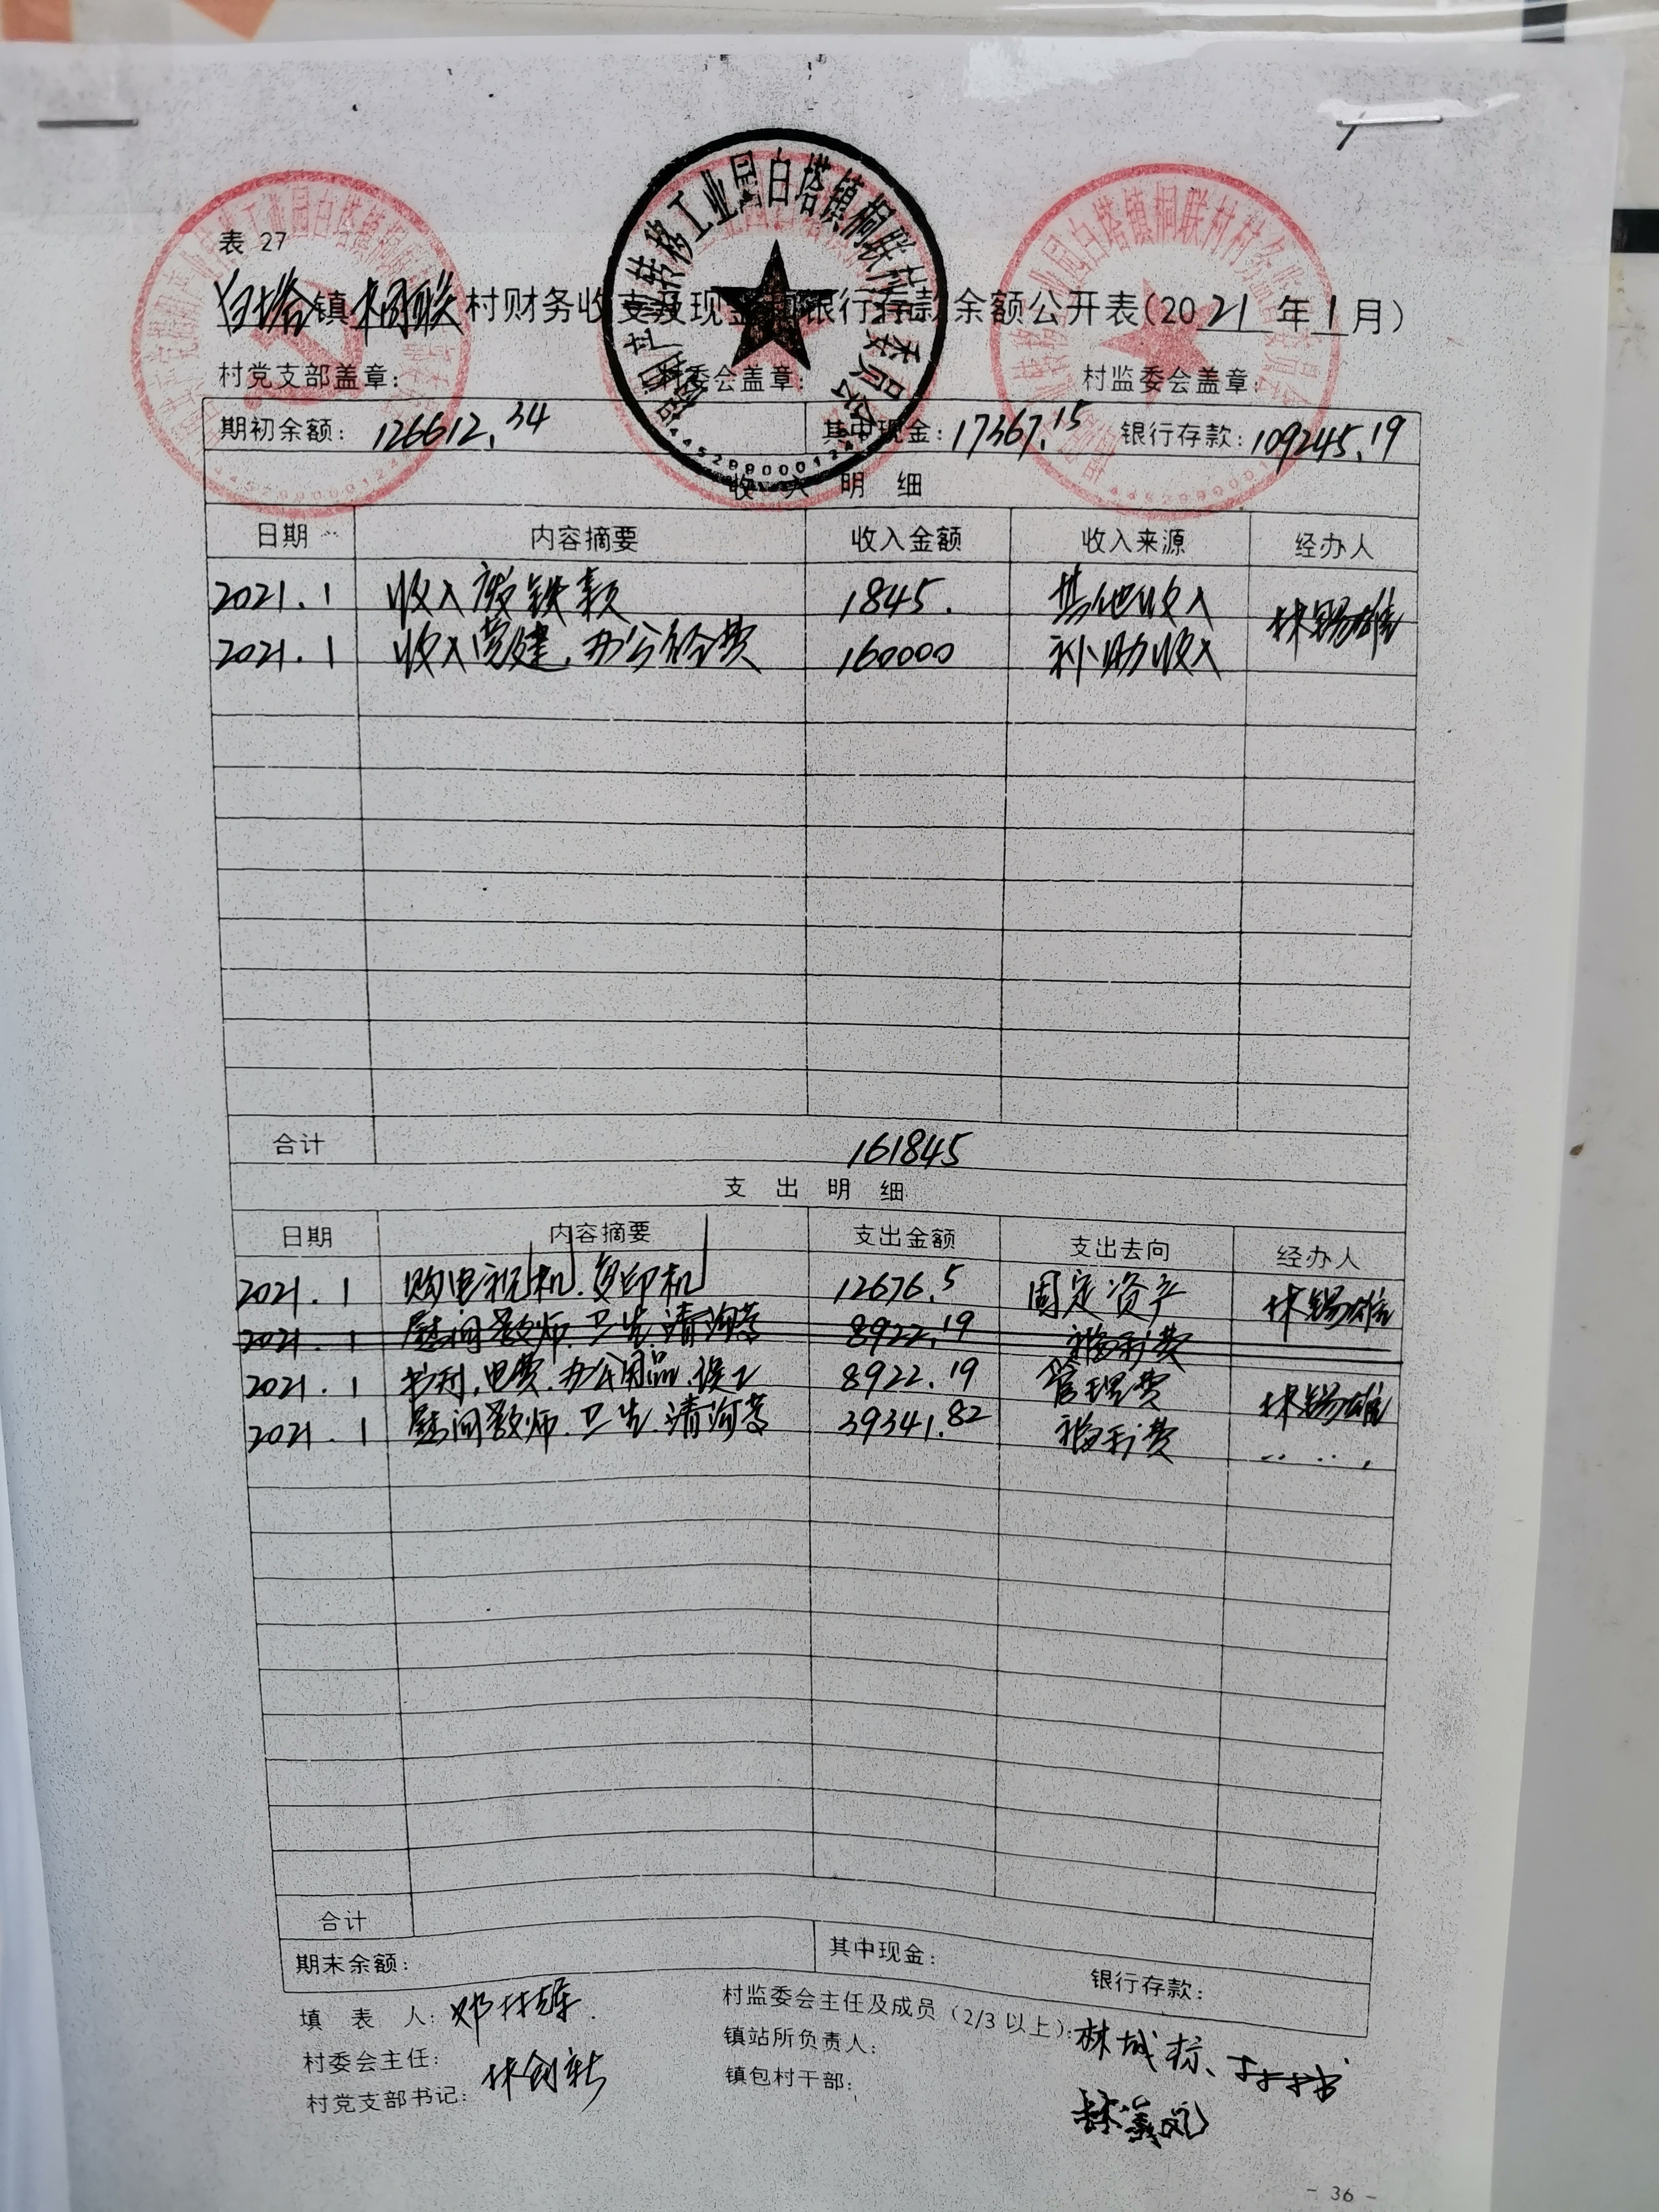 表 27
白塔镇桐联村财务收支及现金和银行存款余额公开表(2021年1月)
村党支部盖章: 村委会盖章: 村监委会盖章:
期初余额: 126612.34 其中现金: 17367.15 银行存款: 109245.19
收入明细
日期 内容摘要 收入金额 收入来源 经办人
2021.1 收入废铁款 1845. 其他收入 林锡雄
2021.1 收入党建、办公经费 160000 补助收入
合计 161845
支出明细
日期 内容摘要 支出金额 支出去向 经办人
2021.1 购电视机、复印机 12676.5 固定资产 林锡雄
2021.1 慰问教师、卫生、清沟等 8922.19 福利费
2021.1 书刊、电费、办公用品、误工 8922.19 管理费 林锡雄
2021.1 慰问教师、卫生、清沟等 39341.82 福利费
合计
期末余额: 其中现金: 银行存款:
填 表 人: 村监委会主任及成员(2/3以上): 林城
村委会主任: 林创新 镇站所负责人:
村党支部书记: 镇包村干部:
- 36 -